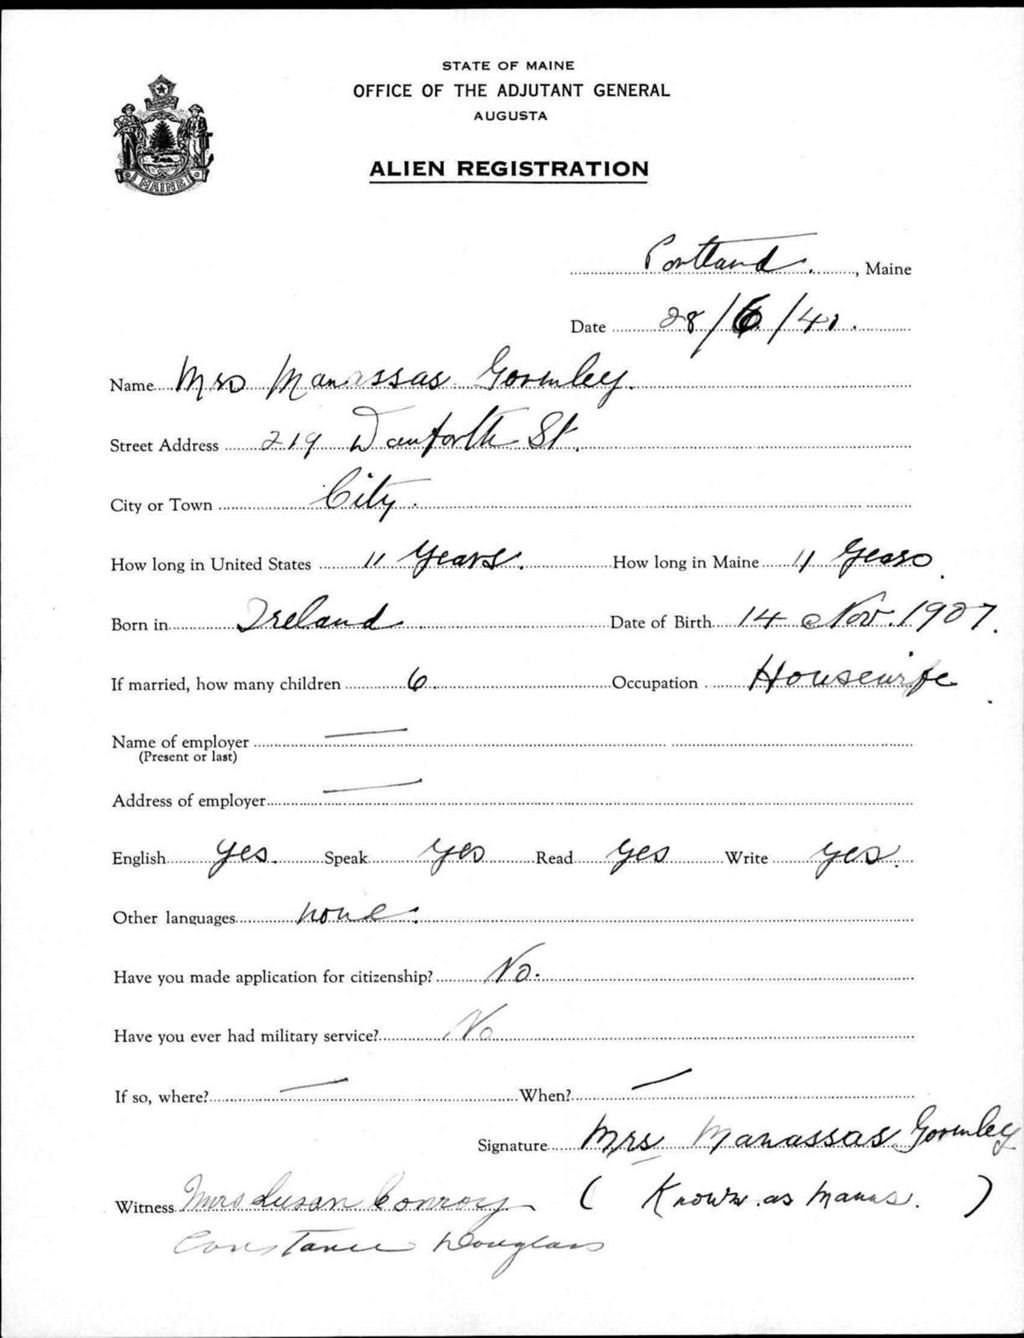 STATE OF MAINE
OFFICE OF THE ADJUTANT GENERAL
AUGUSTA
ALIEN REGISTRATION
MAINE
Portland, Maine
Date 28/6/40.
Name Mrs Manassas Gormley.
Street Address 219 Danforth St.
City or Town City.
How long in United States 11 Years. How long in Maine 11 Years.
Born in Ireland Date of Birth 14 Nov. 1907.
If married, how many children 6 Occupation Housewife.
Name of employer —
(Present or last)
Address of employer —
English yes. Speak yes Read yes Write yes.
Other languages none.
Have you made application for citizenship? No.
Have you ever had military service? No
If so, where? — When? —
Signature Mrs Manassas Gormley
Witness Mrs Susan Conroy ( Known as Manus. )
Constance Douglass